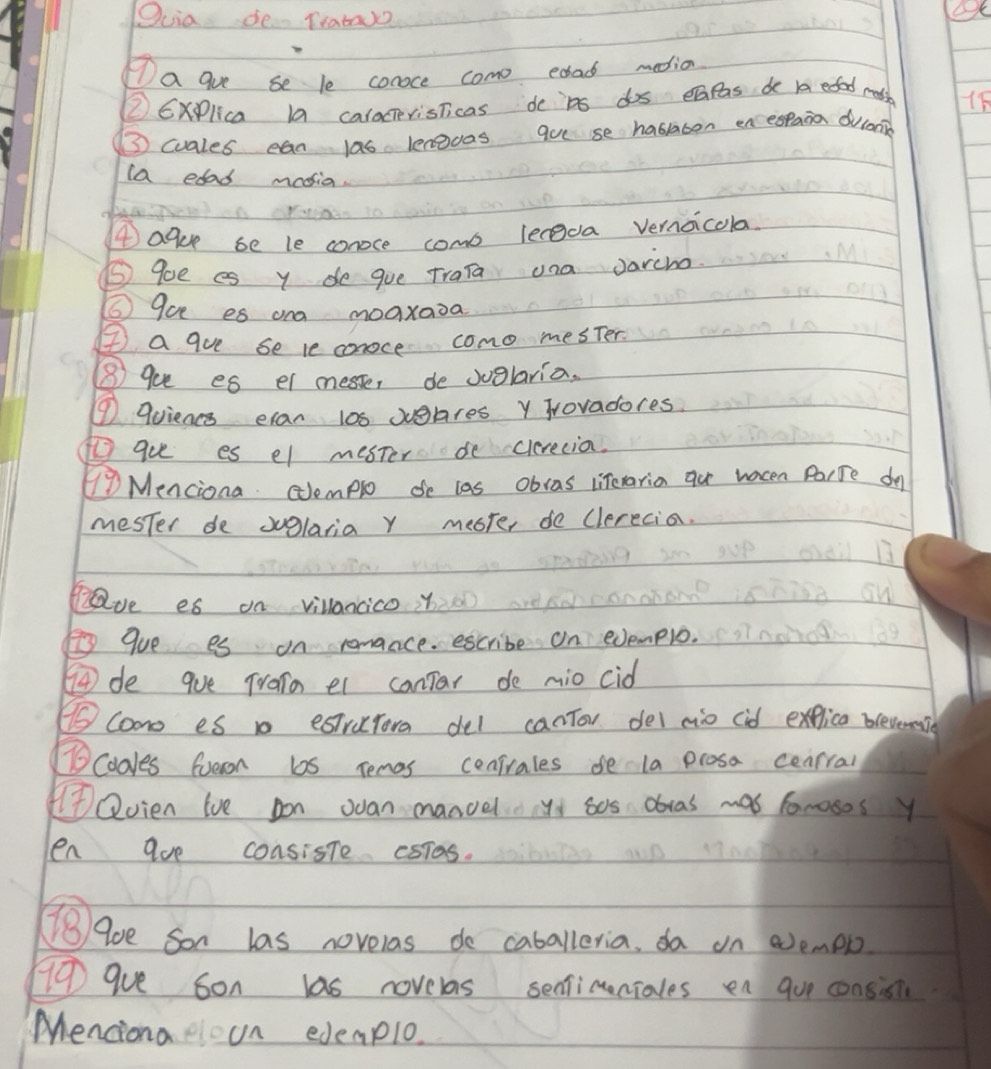 Guia de Trabajo
① a que se le conoce como edad media
② Explica la caracteristicas de las dos etapas de la edad media
③ cuales eran las lenguas que se hablaban en españa durante
la edad media.
④ aque se le conoce como lengua vernácola.
⑤ que es y de que Trata una Jarcha.
⑥ que es una moaxaja
⑦ a que se le conoce como mester.
⑧ que es el mester de Juglaría.
⑨ quienes eran los Juglares y Trovadores.
⑩ que es el mester de clerecia.
⑪ Menciona ejemplo de las obras literaria que hacen parte del
mester de juglaria y mester de clerecia.
⑫ Que es un villancico y
⑬ que es un romance. escribe un ejemplo.
⑭ de que Trata el canTar de mio cid
⑮ como es la estructura del cantar del mio cid explica brevemente
⑯ Cuales fueron los Temas centrales de la prosa central
⑰ Quien fue Don Juan manuel y sus obras mas famosos y
en que consiste estas.
⑱ que son las novelas de caballeria. da un ejemplo.
⑲ que son las novelas sentimentales en que consiste
Menciona un ejemplo.